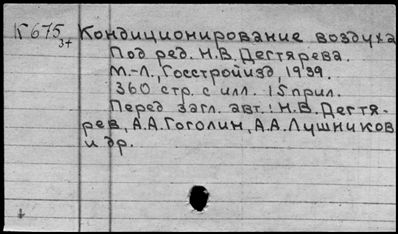 К675 Кондиционирование воздуха
37 Под ред. Н.В. Дегтярева.
М.-Л., Госстройизд, 1939.
360 стр. с илл. 15 прил.
Перед загл. авт.: Н.В. Дегтя-
рев, А.А. Гоголин, А.А. Лушников
и др.